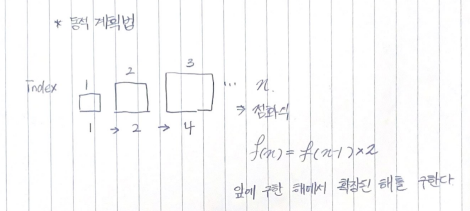 * 동적 계획법
Index 1 2 3 ... n.
1 → 2 → 4
⇒ 점화식
f(n) = f(n-1)×2
앞에 구한 해에서 확장된 해를 구한다